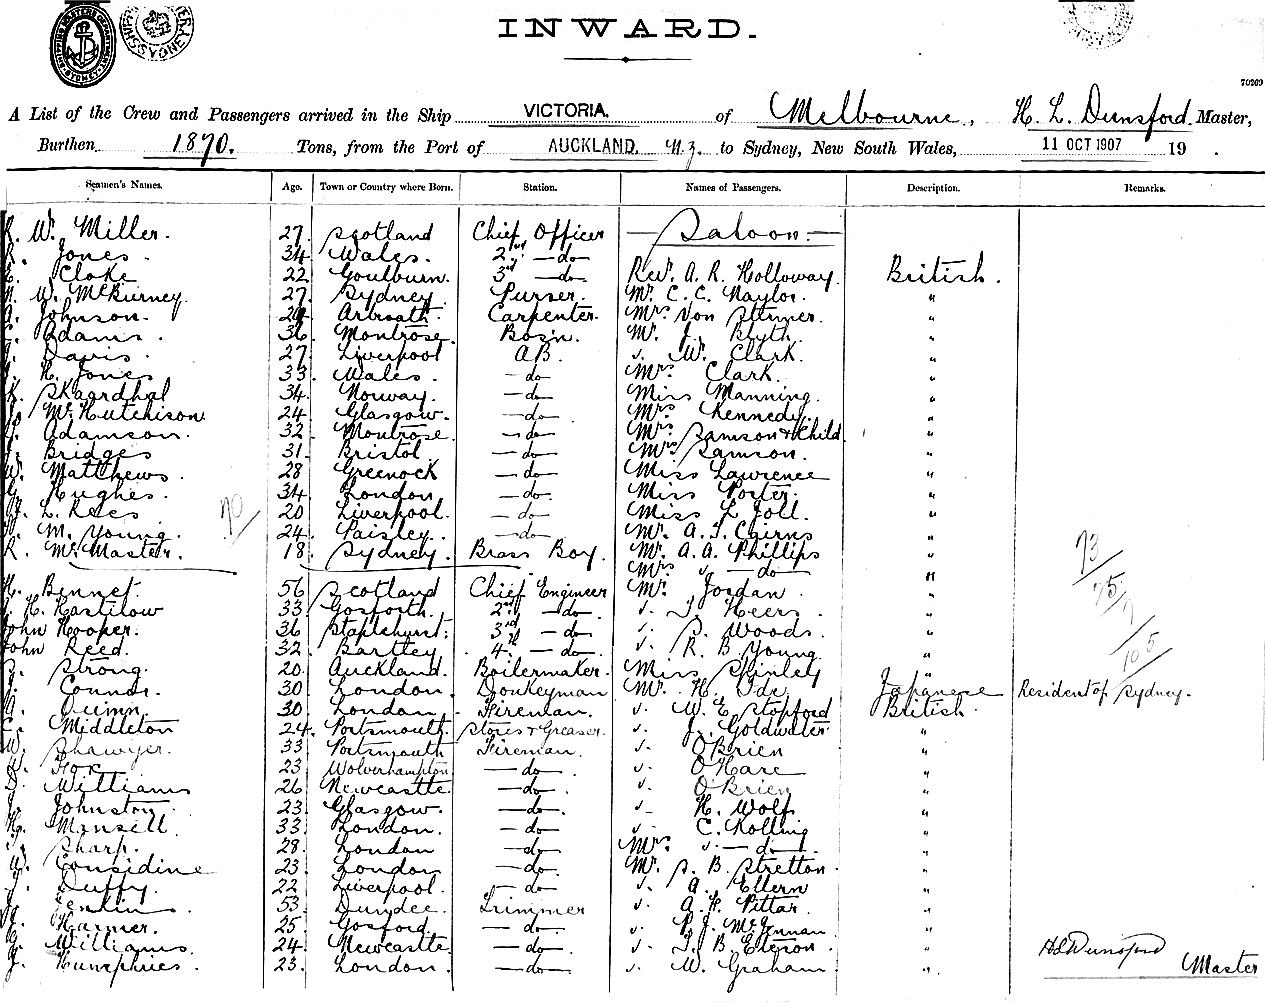 INWARD.
70269
A List of the Crew and Passengers arrived in the Ship VICTORIA. of Melbourne, H. L. Dunsford Master,
Burthen 1870. Tons, from the Port of AUCKLAND. N.Z. to Sydney, New South Wales, 11 OCT 1907 19 .
Seamen's Names. Age. Town or Country where Born. Station. Names of Passengers. Description. Remarks.
W. Miller. 27 Scotland Chief Officer Saloon.
Jones. 34 Wales. 2nd do
Cloke 22 Goulburn. 3rd do Rev. A. R. Holloway. British.
W. McKurney. 27 Sydney Purser. Mr. C. C. Naylor. "
Johnson. Arbroath. Carpenter. Mrs. Von Sturmer. "
Adams. 36 Montrose. Bosn. Mr. J. Blyth. "
Davis. 27 Liverpool AB. W. Clark. "
H. Jones 33 Wales. do Mrs. Clark. "
Skaardhal 34 Norway. do Miss Manning. "
McHutchison 24 Glasgow. do Mrs. Kennedy. "
Adamson. 32 Montrose. do Mrs. Samson & Child "
Bridges 31 Bristol. do Mrs. Samson. "
W. Matthews. 28 Greenock do Miss Lawrence "
Hughes. 34 London do Miss Porter. "
L. Rees 20 Liverpool. do Miss L. Joll. "
M. Young. 24 Paisley. do Mr. A. J. Cairns "
R. McMaster. 18 Sydney. Brass Boy. Mr. A. A. Phillips "
Mrs. do "
H. Bennet. 56 Scotland Chief Engineer Mr. Jordan "
H. Rastilow 33 Gosforth. 2nd do J. Heers. "
John Hooper. 36 Staplehurst. 3rd do S. Woods. "
John Reed. 32 Bartley 4th do R. B. Young "
Strong. 20 Auckland. Boilermaker. Miss Spinley "
Connor. 30 London. Donkeyman Mr. H. Ide Japanese Resident of Sydney.
Quinn. 30 London. Fireman. W. E. Stopford British.
C. Middleton 24 Portsmouth. Stores & Greaser. J. Goldwater "
W. Shawyer. 33 Portsmouth Fireman. O'Brien "
23 Wolverhampton do O'Hare "
D. Williams 26 Newcastle. do O'Brien "
J. Johnston. 23 Glasgow. do H. Wolf "
H. Mansell. 33 London. do C. Kolling "
Sharp. 28 London do Mrs. do "
W. Considine 23 London do Mr. S. B. Stretton. "
J. Duffy. 22 Liverpool. do A. Ellern "
Jenkins. 53 Dundee. Trimmer A. H. Pittar. "
Harmer. 25 Gosford. do P. J. "
Williams. 24 Newcastle do J. B. "
J. Humphries. 23 London. do W. Graham "
70
73
75
105
H L Dunsford
Master